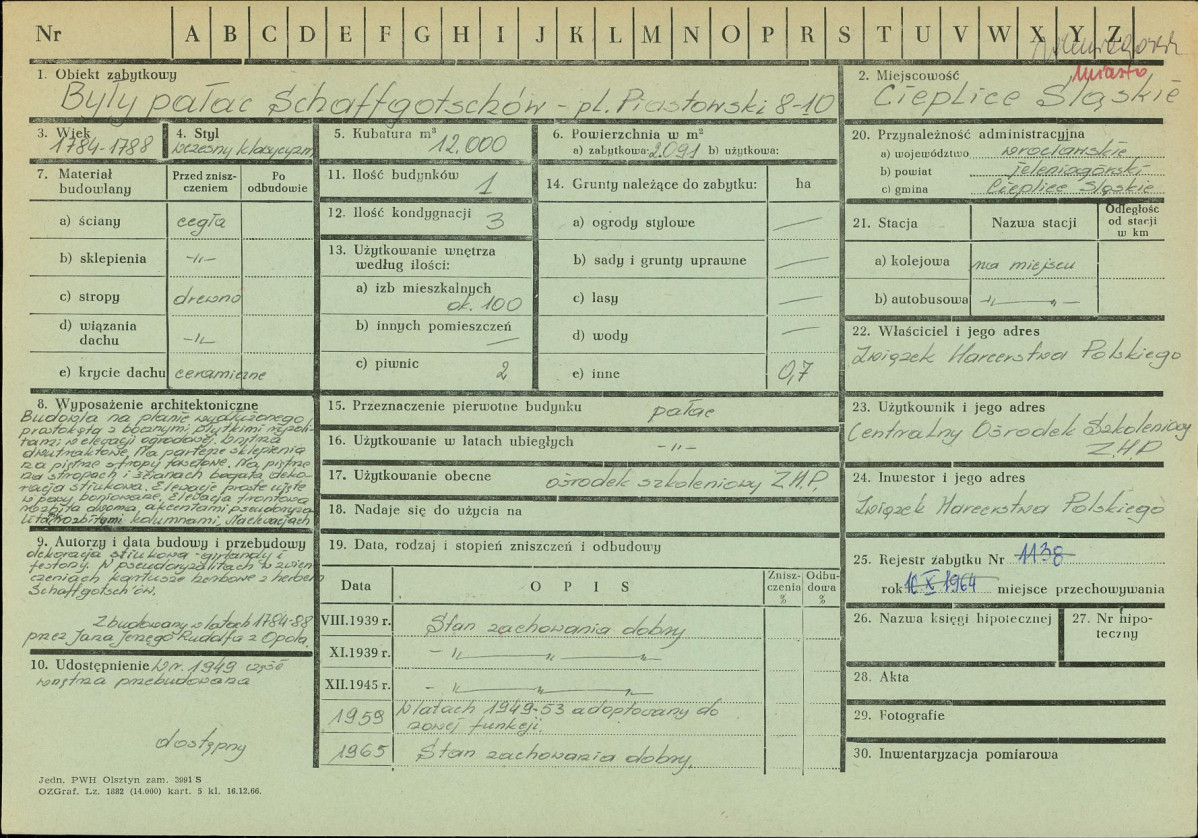 Nr A B C D E F G H I J K L M N O P R S T U V W X Y Z
miasto
1. Obiekt zabytkowy
Były pałac Schaffgotschów - pl. Piastowski 8-10
2. Miejscowość
Cieplice Śląskie
3. Wiek
1784-1788
4. Styl
wczesny klasycyzm
5. Kubatura m³
12.000
6. Powierzchnia w m²
a) zabytkowa: 2.091 b) użytkowa:
20. Przynależność administracyjna
a) województwo wrocławskie
b) powiat jeleniogórski
c) gmina Cieplice Śląskie
7. Materiał budowlany
Przed zniszczeniem
Po odbudowie
a) ściany cegła
b) sklepienia -„-
c) stropy drewno
d) wiązania dachu -„-
e) krycie dachu ceramiczne
11. Ilość budynków 1
12. Ilość kondygnacji 3
13. Użytkowanie wnętrza według ilości:
a) izb mieszkalnych
ok. 100
b) innych pomieszczeń —
c) piwnic 2
14. Grunty należące do zabytku: ha
a) ogrody stylowe —
b) sady i grunty uprawne —
c) lasy —
d) wody —
e) inne 0,7
21. Stacja
Nazwa stacji
Odległość od stacji w km
a) kolejowa na miejscu
b) autobusowa -„-
22. Właściciel i jego adres
Związek Harcerstwa Polskiego
8. Wyposażenie architektoniczne
Budowla na planie wydłużonego
prostokąta z bocznymi, płytkimi ryzali-
tami w elewacji ogrodowej. Wnętrza
dwutraktowe. Na parterze sklepienia
na piętrze stropy fasetowe. Na piętrze
na stropach i ścianach bogata deko-
racja stiukowa. Elewacje proste ujęte
w pasy boniowane. Elewacja frontowa
rozbita dwoma, akcentami pseudoryza
litów zbitymi kolumnami. Na elewacjach
9. Autorzy i data budowy i przebudowy
dekoracja stiukowa - girlandy i
festony. W pseudoryzalitach w zwień-
czeniach kartusze herbowe z herbem
Schaffgotsch'ów.
Zbudowany w latach 1784-88
przez Jana Jerzego Rudolfa z Opola.
10. Udostępnienie W r. 1949 część
wnętrza przebudowana
dostępny
15. Przeznaczenie pierwotne budynku pałac
16. Użytkowanie w latach ubiegłych -„-
17. Użytkowanie obecne ośrodek szkoleniowy Z.H.P.
18. Nadaje się do użycia na
19. Data, rodzaj i stopień zniszczeń i odbudowy
Data
O P I S
Zniszczenia %
Odbudowa %
VIII.1939 r. Stan zachowania dobry
XI.1939 r. -„- „ „
XII.1945 r. -„- „ „
1959 W latach 1949-53 adoptowany do
nowej funkcji.
1965 Stan zachowania dobry.
23. Użytkownik i jego adres
Centralny Ośrodek Szkoleniowy
Z.H.P
24. Inwestor i jego adres
Związek Harcerstwa Polskiego
25. Rejestr zabytku Nr 1138
rok 10 X 1964 miejsce przechowywania
26. Nazwa księgi hipotecznej
27. Nr hipoteczny
28. Akta
29. Fotografie
30. Inwentaryzacja pomiarowa
Jedn. PWH Olsztyn zam. 3991 S
OZGraf. Lz. 1882 (14.000) kart. 5 kl. 16.12.66.